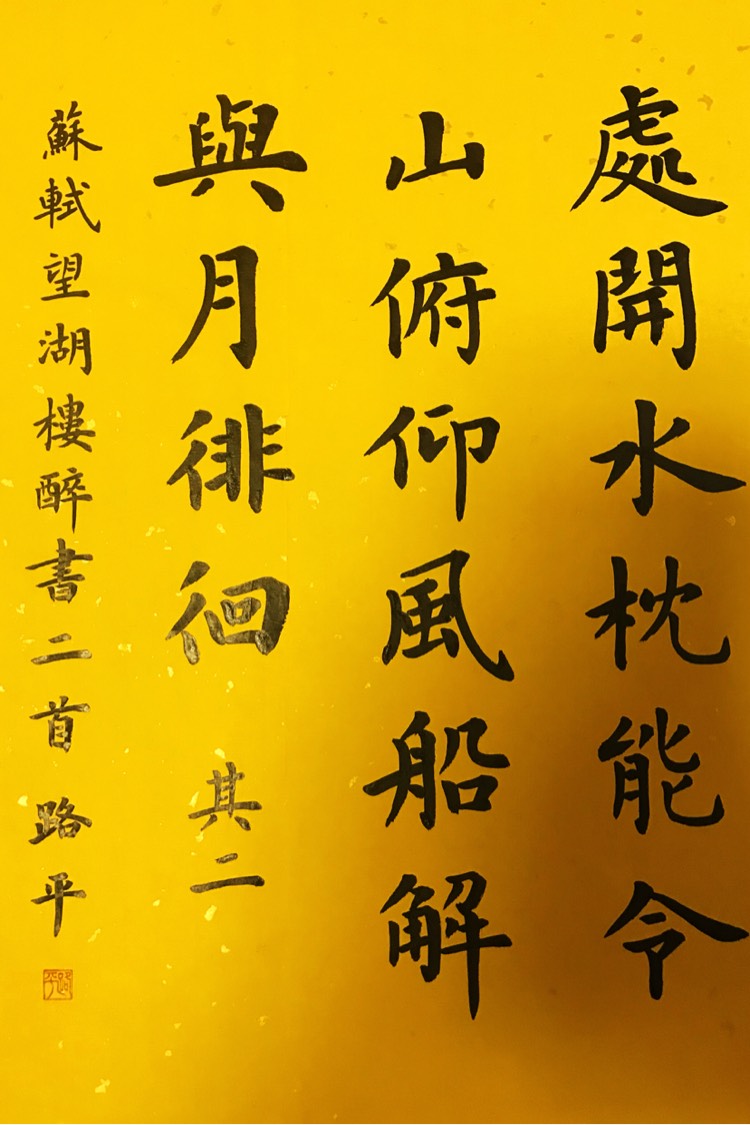 處開水枕能令
山俯仰風船解
與月徘徊 其二
蘇軾望湖樓醉書二首路平